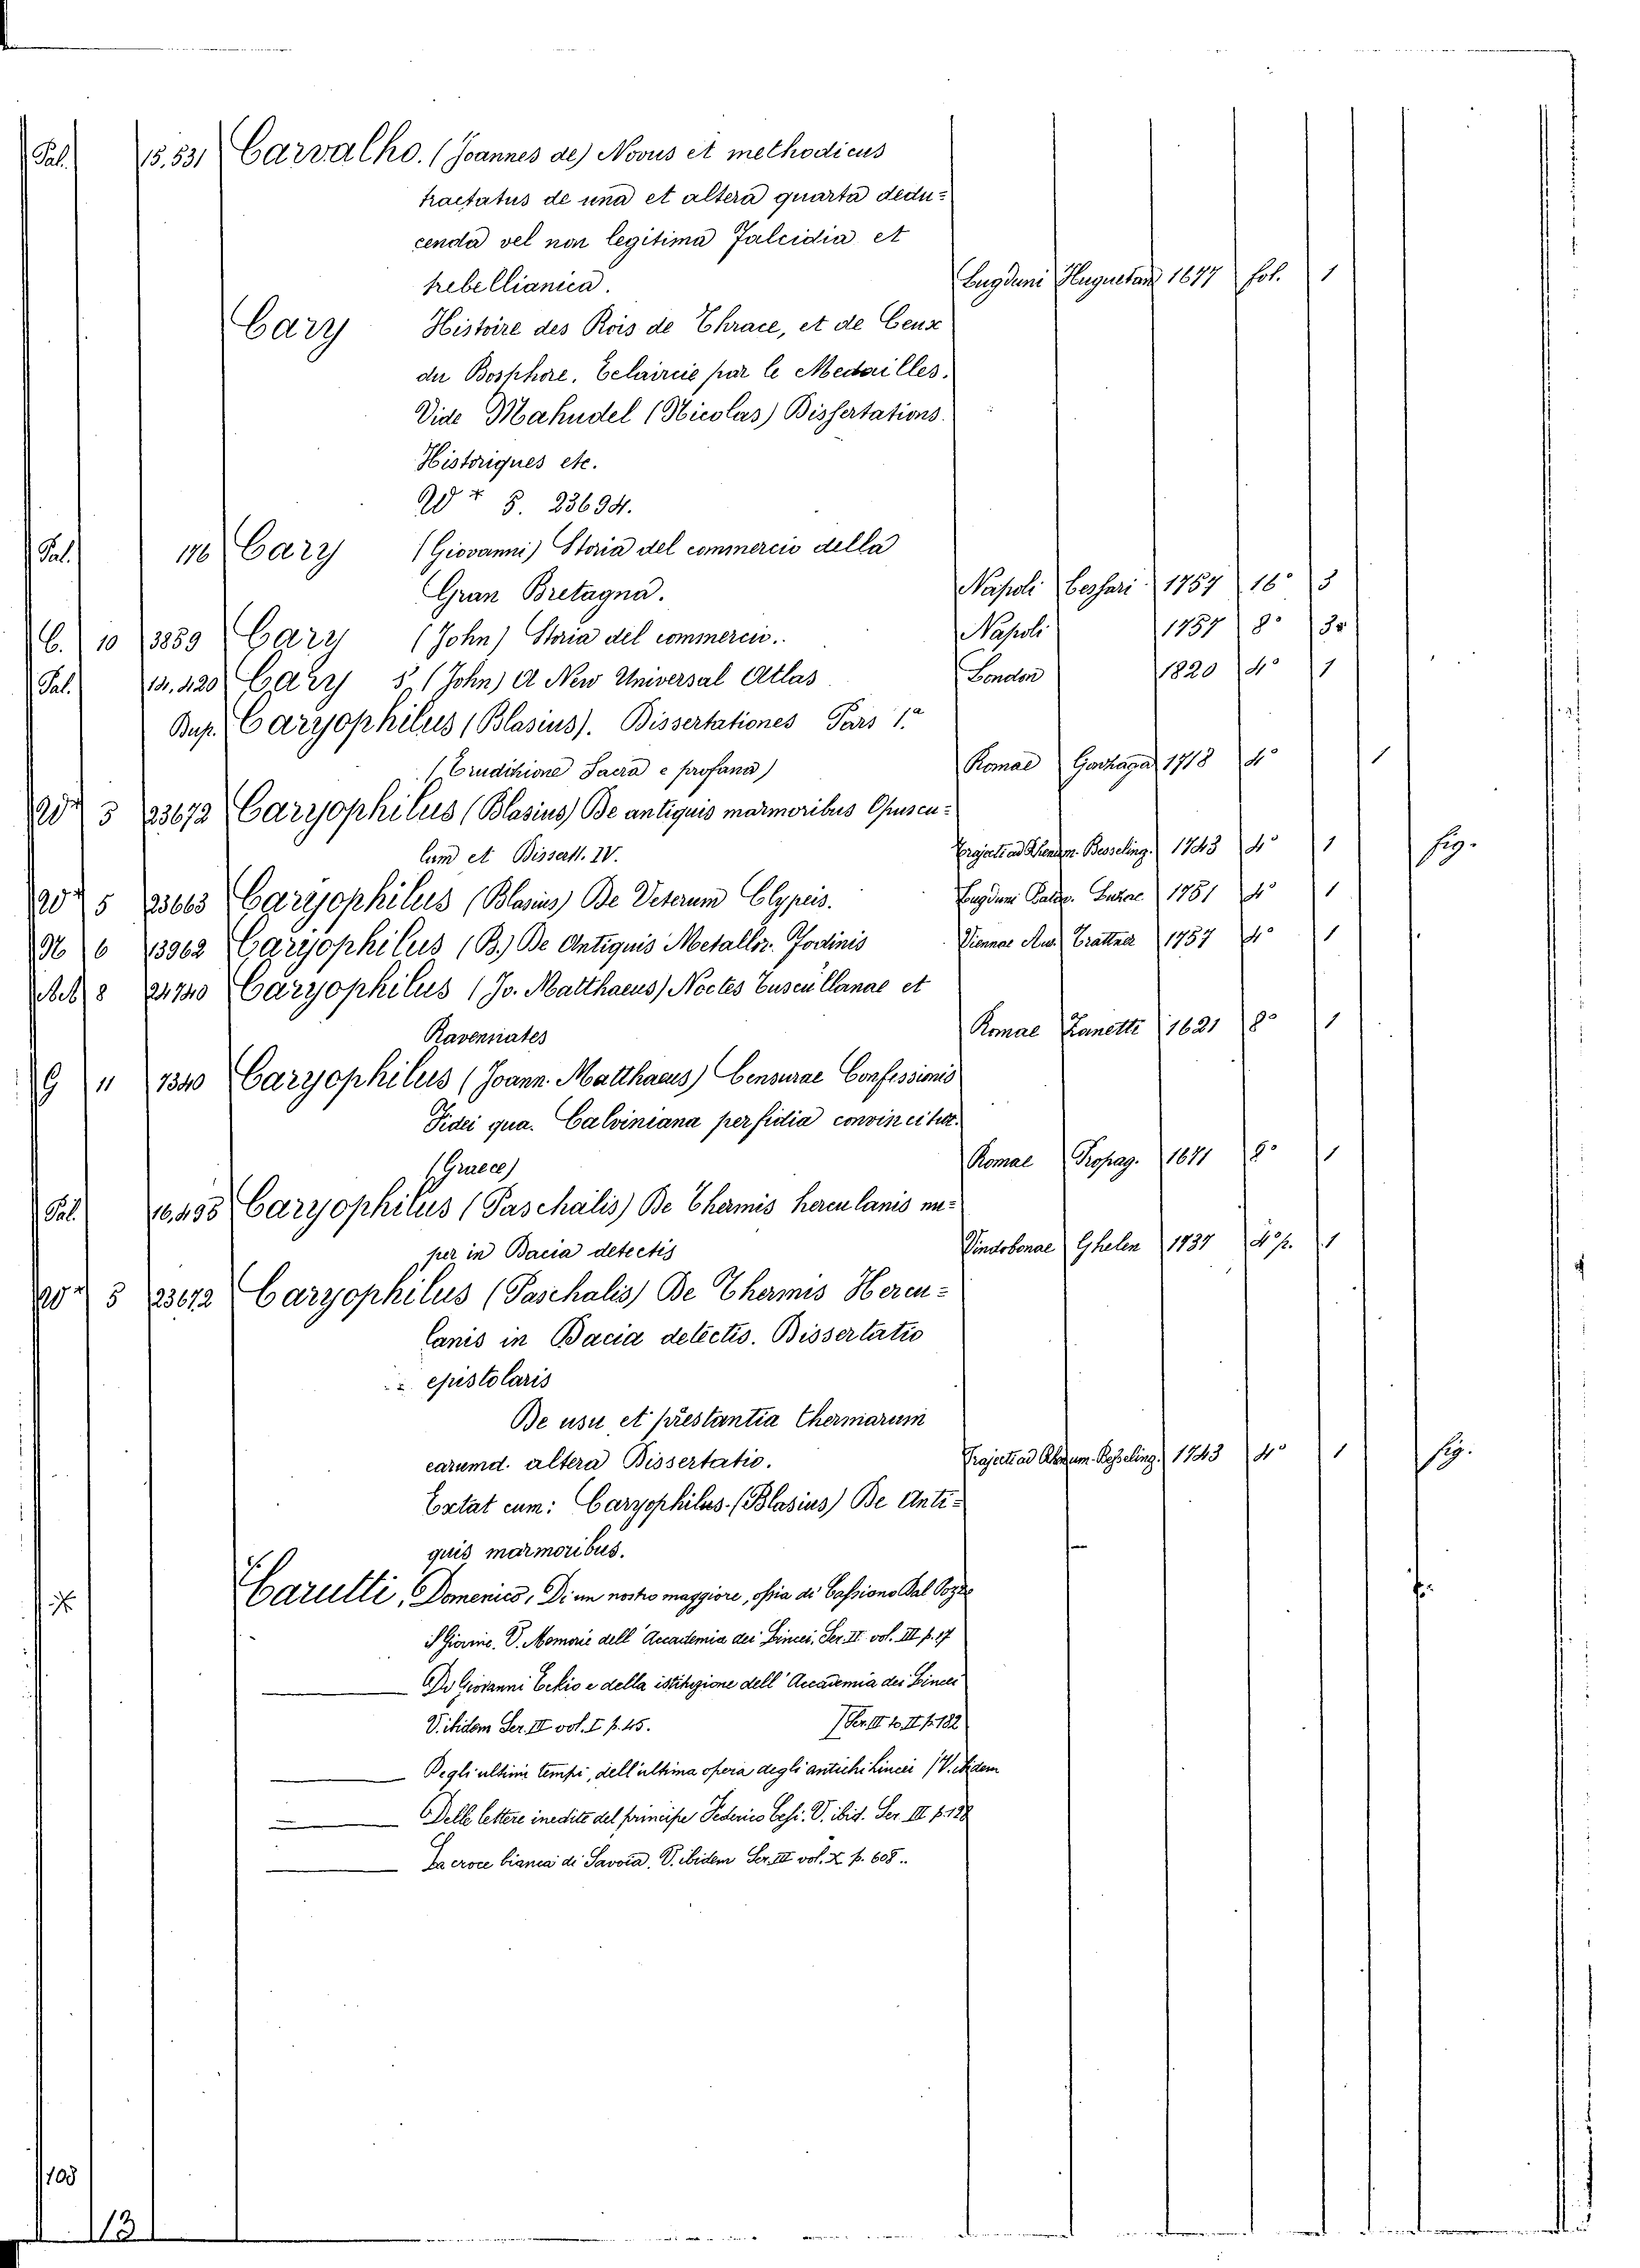 Pal. 15.531 Carvalho. (Joannes de) Novus et methodicus
tractatus de una et altera quarta dedu=
cenda vel non legitima Falcidia et
trebellianica. Lugduni Huguetan 1677 fol. 1
Cary Histoire des Rois de Thrace, et de Ceux
du Bosphore, Eclaircie par le Medailles.
Vide Mahudel (Nicolas) Dissertations
Historiques etc.
5. 23694.
Pal. 176 Cary (Giovanni) Storia del commercio della
Gran Bretagna. Napoli Cesari 1757 16° 3
C. 10 3859 Cary (John) Storia del commercio. Napoli 1757 8°
Pal. 14.420 Cary (John) A New Universal Atlas London 1820 4° 1
Bup. Caryophilus (Blasius). Dissertationes Pars 1.a
(Erudizione Sacra e profana) Romae 1718 4° 1
5 23672 Caryophilus (Blasius) De antiquis marmoribus Opuscu=
lum et Dissertt. IV. Trajecti ad Rhenum. Besseling. 1743 4° 1 fig.
5 23663 Caryophilus (Blasius) De Veterum Clypeis. Lugduni Batav. Luzac 1751 4° 1
6 13962 Caryophilus (B.) De Antiquis Metallor. Fodinis Viennae Aus. Trattner 1757 4° 1
8 24740 Caryophilus (Jo. Matthaeus) Noctes Tusculanae et
Ravennates Romae Zanetti 1621 8° 1
G 11 1340 Caryophilus (Joann. Matthaeus) Censurae Confessionis
Fidei qua. Calviniana perfidia convincitur.
(Graece) Romae Propag. 1671 8° 1
Pal. 16.495 Caryophilus (Paschalis) De Thermis herculanis nu=
per in Dacia detectis Vindobonae Ghelen 1737 4° p. 1
5 23672 Caryophilus (Paschalis) De Thermis Hercu=
lanis in Dacia detectis. Dissertatio
epistolaris
De usu et prestantia Thermarum
earumd. altera Dissertatio. Trajecti ad Rhenum. Besseling. 1743 4° 1 fig.
Extat cum: Caryophilus (Blasius) De Anti=
quis marmoribus.
Carutti, Domenico, Di un nostro maggiore, ossia di Cassiano Dal Pozzo
il Giovine. V. Memorie dell'Accademia dei Lincei, Ser. II vol. III p. 17
Di Giovanni Eckio e della istituzione dell'Accademia dei Lincei
V. ibidem Ser. II vol. I p. 45. / Ser. III v. II p. 182
Degli ultimi tempi, dell'ultima opera degli antichi Lincei / V. ibidem
Delle lettere inedite del principe Federico Cesi. V. ibid. Ser. III p. 128
La croce bianca di Savoia. V. ibidem Ser. III vol. X p. 608.
108
113